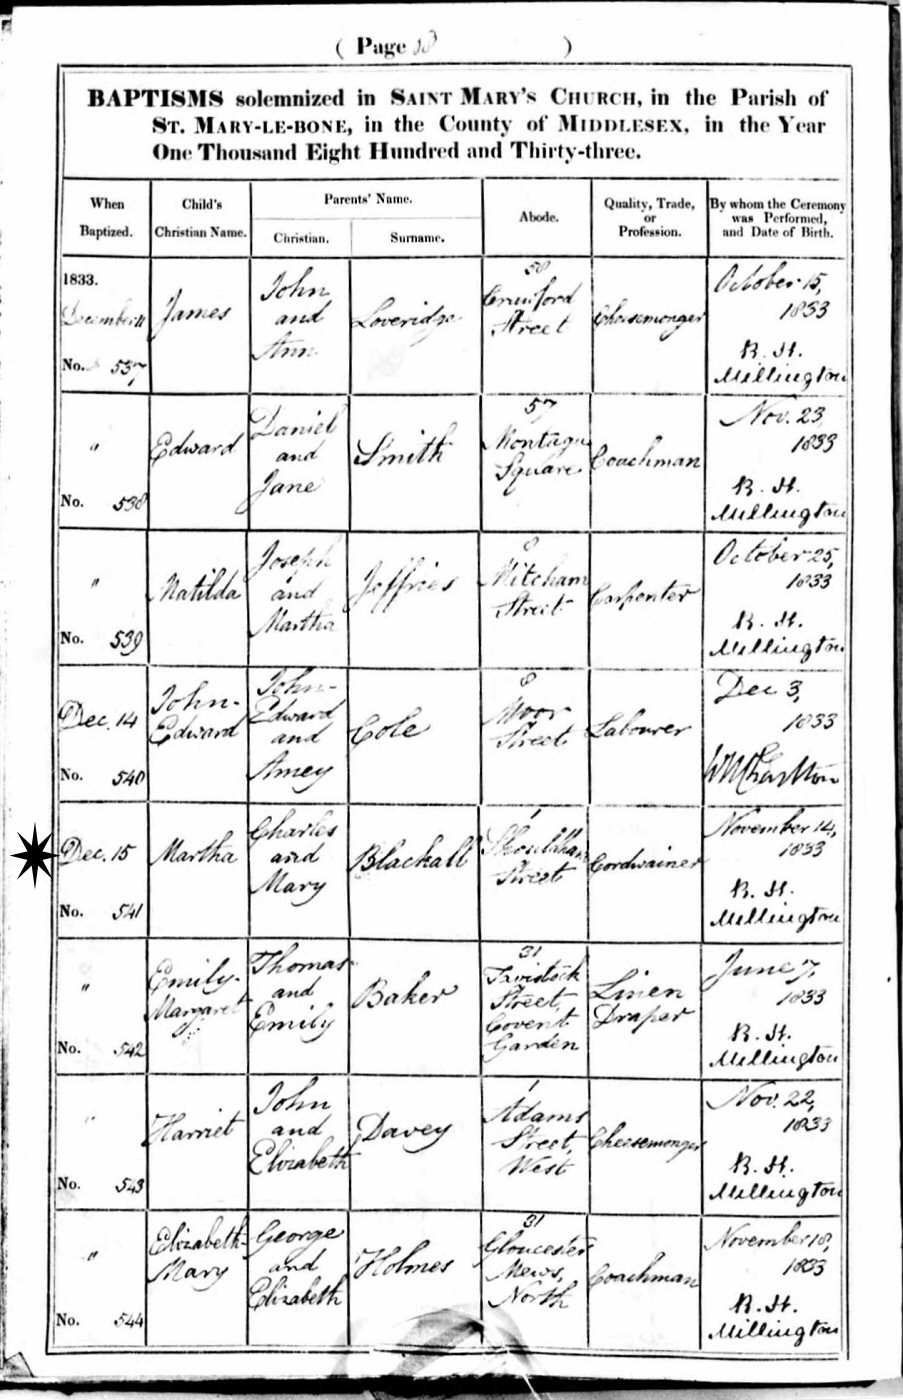 ( Page )
BAPTISMS solemnized in SAINT MARY'S CHURCH, in the Parish of
ST. MARY-LE-BONE, in the County of MIDDLESEX, in the Year
One Thousand Eight Hundred and Thirty-three.
When Baptized. Child's Christian Name. Parents' Name. Christian. Surname. Abode. Quality, Trade, or Profession. By whom the Ceremony was Performed, and Date of Birth.
1833.
December 11
No. 537
James
John
and
Ann
Loveridge
58
Crawford
Street
Cheesemonger
October 15,
1833
R. H.
Millington
"
No. 538
Edward
Daniel
and
Jane
Smith
57
Montagu
Square
Coachman
Nov. 23,
1833
R. H.
Millington
"
No. 539
Matilda
Joseph
and
Martha
Jeffries
8
Mitcham
Street
Carpenter
October 25,
1833
R. H.
Millington
Dec. 14
No. 540
John-
Edward
John-
Edward
and
Amey
Cole
8
Moor
Street
Labourer
Dec 3,
1833
WMCharlton
Dec. 15
No. 541
Martha
Charles
and
Mary
Blackall
1
Shouldham
Street
Cordwainer
November 14,
1833
R. H.
Millington
"
No. 542
Emily-
Margaret
Thomas
and
Emily
Baker
31
Tavistock
Street,
Covent
Garden
Linen
Draper
June 7,
1833
R. H.
Millington
"
No. 543
Harriet
John
and
Elizabeth
Davey
1
Adams
Street,
West
Cheesemonger
Nov. 22,
1833
R. H.
Millington
"
No. 544
Elizabeth-
Mary
George
and
Elizabeth
Holmes
31
Gloucester
Mews,
North
Coachman
November 18,
1833
R. H.
Millington